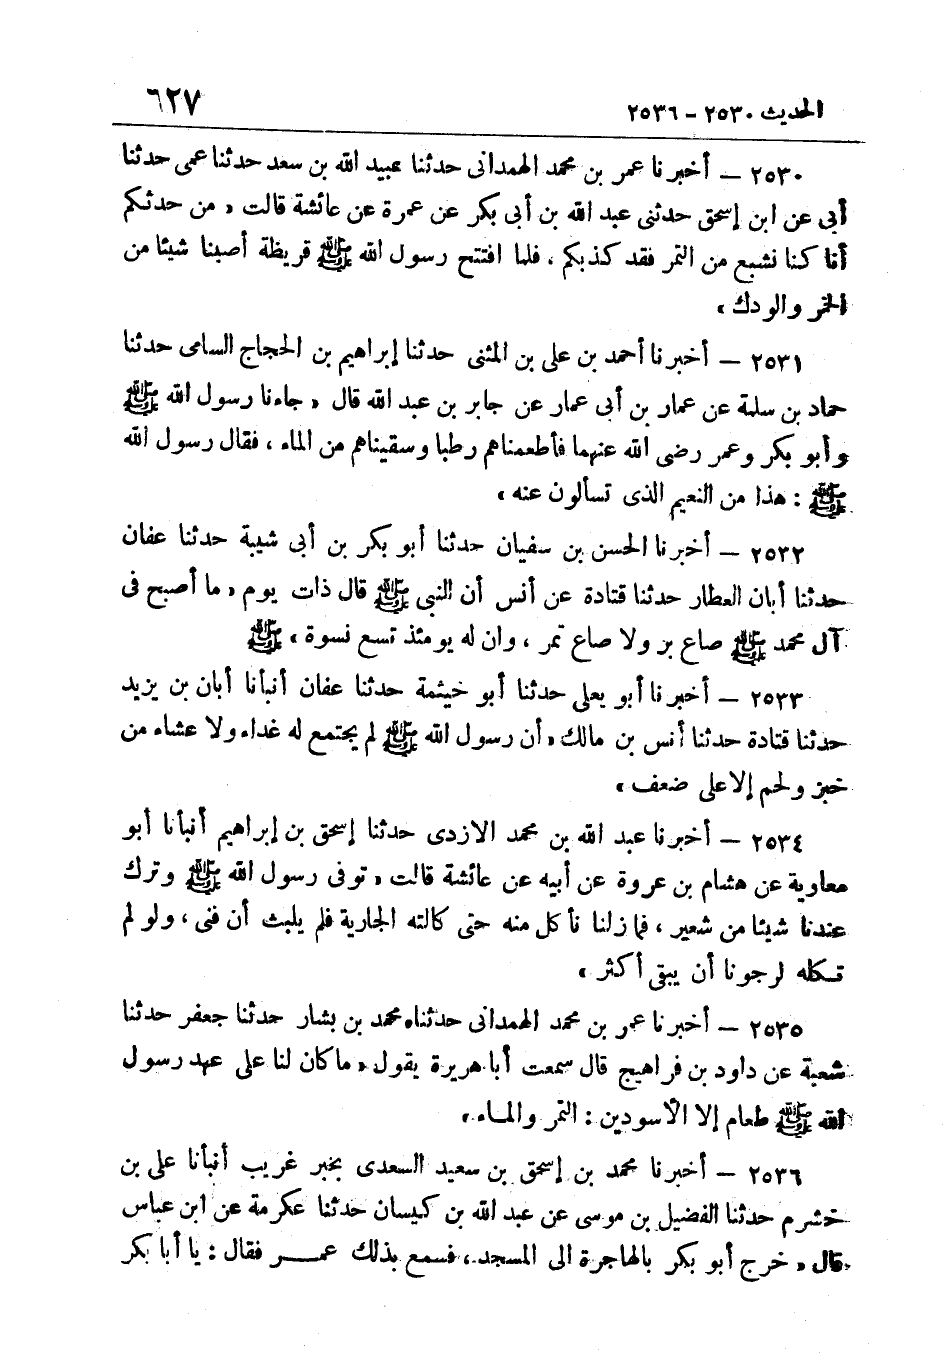 الحديث ٢٥٣٠ - ٢٥٣٦
٦٢٧
٢٥٣٠ — أخبرنا عمر بن محمد الهمدانى حدثنا عبيد الله بن سعد حدثنا عمى حدثنا
أبى عن ابن إسحق حدثنى عبد الله بن أبى بكر عن عمرة عن عائشة قالت « من حدثكم
أنا كنا نشبع من التمر فقد كذبكم ، فلما افتتح رسول الله ﷺ قريظة أصبنا شيئا من
الخمر والودك »
٢٥٣١ — أخبرنا أحمد بن على بن المثنى حدثنا إبراهيم بن الحجاج السامى حدثنا
حماد بن سلمة عن عمار بن أبى عمار عن جابر بن عبد الله قال « جاءنا رسول الله ﷺ
وأبو بكر وعمر رضى الله عنهما فأطعمناهم رطبا وسقيناهم من الماء ، فقال رسول الله
ﷺ : هذا من النعيم الذى تسألون عنه »
٢٥٣٢ — أخبرنا الحسن بن سفيان حدثنا أبو بكر بن أبى شيبة حدثنا عفان
حدثنا أبان العطار حدثنا قتادة عن أنس أن النبى ﷺ قال ذات يوم « ما أصبح فى
آل محمد ﷺ صاع بر ولا صاع تمر ، وان له يومئذ تسع نسوة » ﷺ
٢٥٣٣ — أخبرنا أبو يعلى حدثنا أبو خيثمة حدثنا عفان أنبأنا أبان بن يزيد
حدثنا قتادة حدثنا أنس بن مالك « أن رسول الله ﷺ لم يجتمع له غداء ولا عشاء من
خبز ولحم إلا على ضعف »
٢٥٣٤ — أخبرنا عبد الله بن محمد الازدى حدثنا إسحق بن إبراهيم أنبأنا أبو
معاوية عن هشام بن عروة عن أبيه عن عائشة قالت « توفى رسول الله ﷺ وترك
عندنا شيئا من شعير ، فما زلنا نأكل منه حتى كالته الجارية فلم يلبث أن فنى ، ولو لم
تكله لرجونا أن يبقى أكثر »
٢٥٣٥ — أخبرنا عمر بن محمد الهمدانى حدثناه محمد بن بشار حدثنا جعفر حدثنا
شعبة عن داود بن فراهيج قال سمعت أبا هريرة يقول « ما كان لنا على عهد رسول
الله ﷺ طعام إلا الأسودين : التمر والماء »
٢٥٣٦ — أخبرنا محمد بن إسحق بن سعيد السعدى بخبر غريب أنبأنا على بن
خشرم حدثنا الفضيل بن موسى عن عبد الله بن كيسان حدثنا عكرمة عن ابن عباس
قال « خرج أبو بكر بالهاجرة الى المسجد ، فسمع بذلك عمر فقال : يا أبا بكر